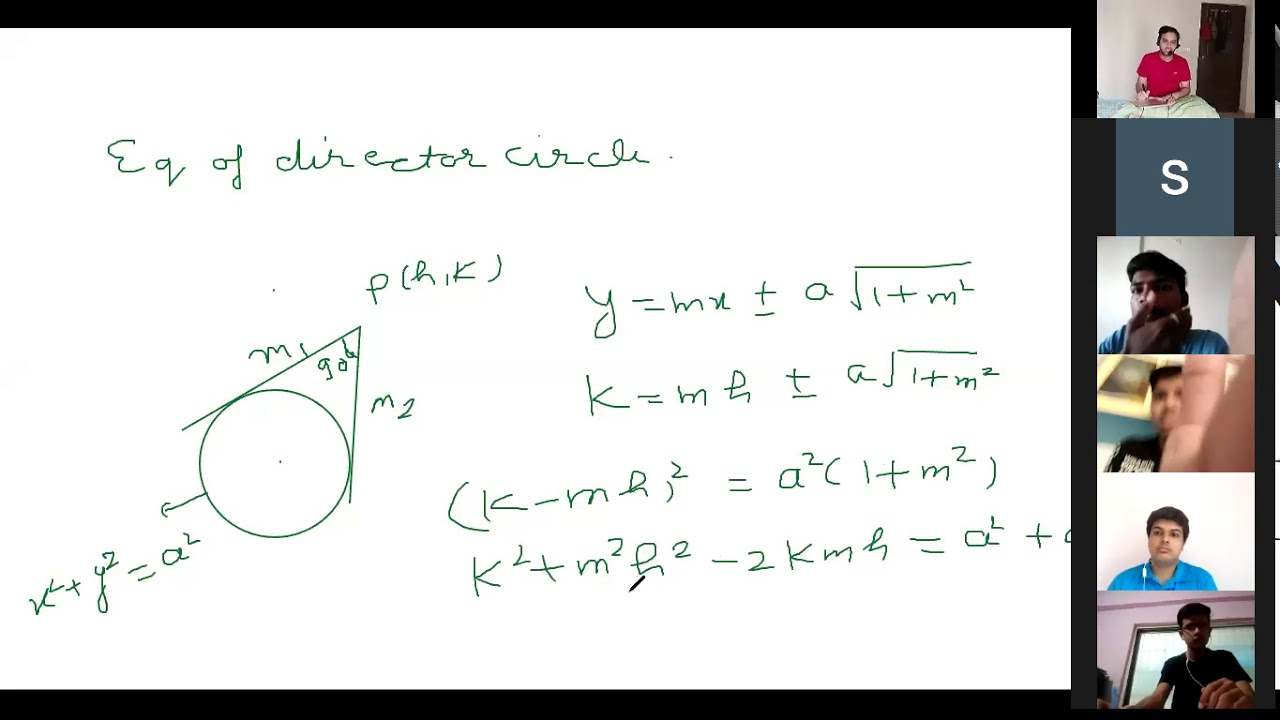 Eq of director circle.
P(h,k)
m₁
90°
m₂
x²+y²=a²
y=mx ± a√1+m²
k=mh ± a√1+m²
(k-mh)² = a²(1+m²)
k²+m²h²-2kmh=a²+
S